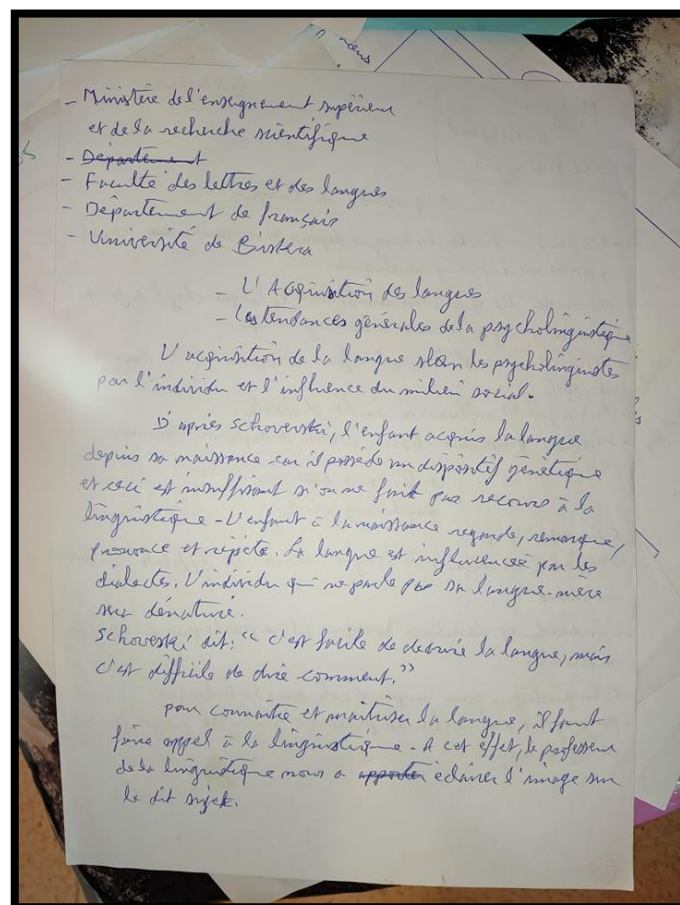 - Ministère de l'enseignement supérieur
et de la recherche scientifique
- Département
- Faculté des lettres et des langues
- Département de français
- Université de Biskra
- L'Acquisition des langues
- Les tendances générales de la psycholinguistique
L'acquisition de la langue selon les psycholinguistes
par l'individu et l'influence du milieu social.
D'après Schoverski, l'enfant acquis la langue
depuis sa naissance car il possède un dispositif génétique
et ceci est insuffisant si on ne fait pas recours à la
linguistique - L'enfant à la naissance regarde, remarque,
prononce et répète. La langue est influencée par les
dialectes. L'individu qui ne parle pas sa langue-mère
sera dénaturé.
Schoveski dit: "c'est facile de decrire la langue, mais
c'est difficile de dire comment."
pour connaitre et maitriser la langue, il faut
faire appel à la linguistique - A cet effet, le professeur
de la linguistique nous a apporter éclairer l'image sur
le dit sujet.